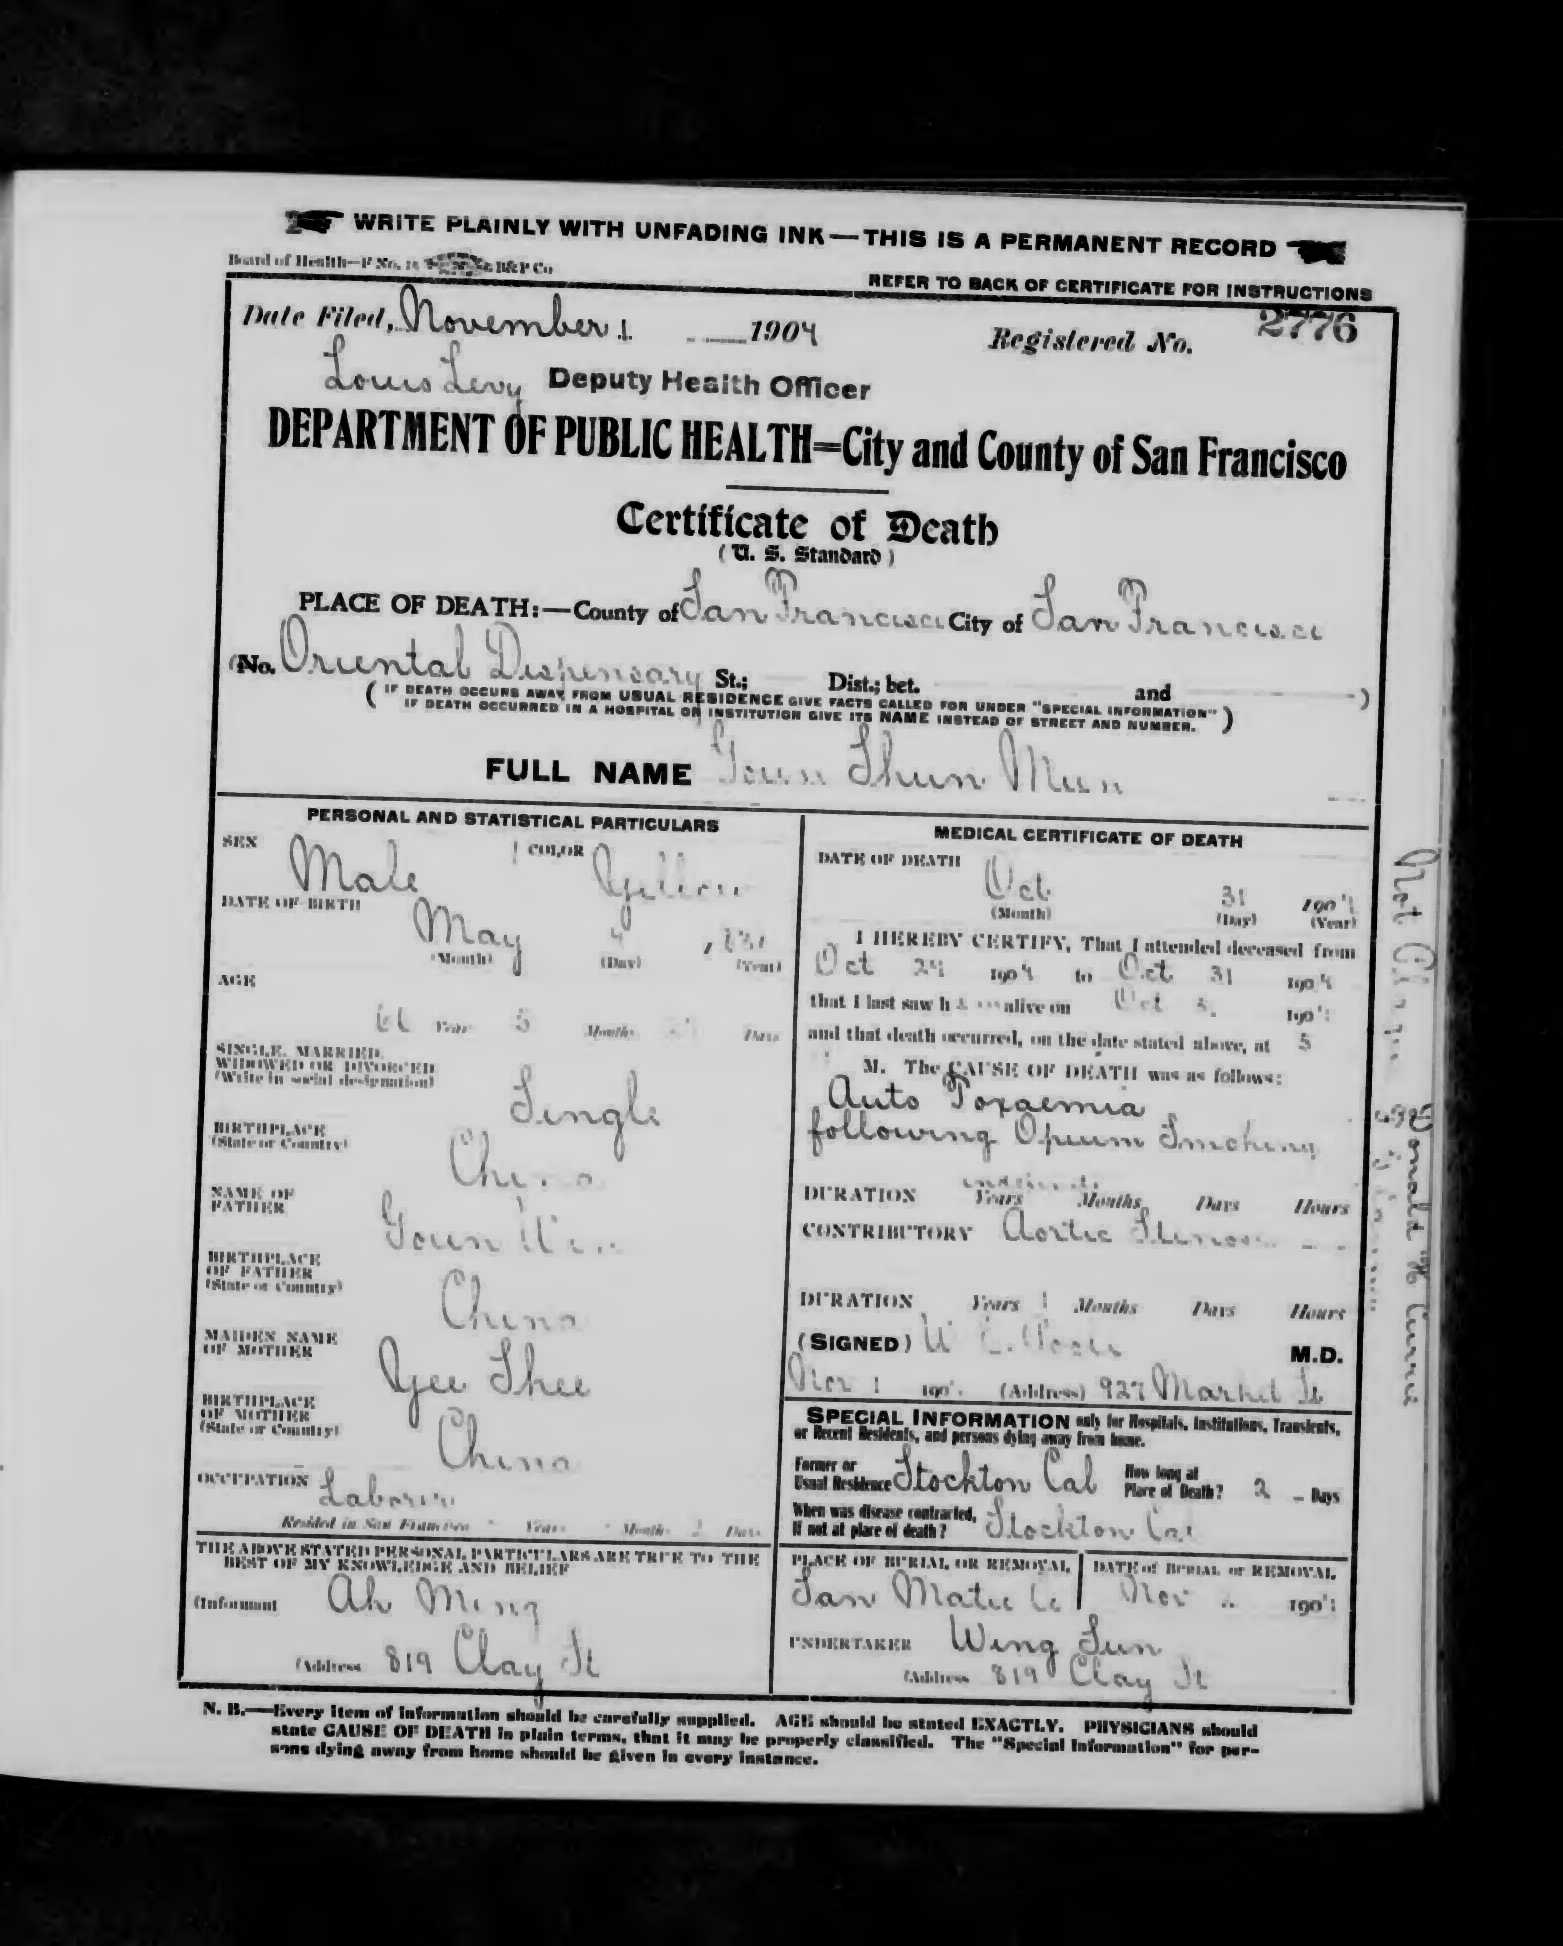 WRITE PLAINLY WITH UNFADING INK—THIS IS A PERMANENT RECORD
Board of Health—F No. 15 B&P Co
REFER TO BACK OF CERTIFICATE FOR INSTRUCTIONS
Date Filed, November 1 1904 Registered No. 2776
Louis Levy Deputy Health Officer
DEPARTMENT OF PUBLIC HEALTH=City and County of San Francisco
Certificate of Death
(U. S. Standard)
PLACE OF DEATH:—County of San Francisco City of San Francisco
(No. Oriental Dispensary St.; Dist.; bet. and )
(IF DEATH OCCURS AWAY FROM USUAL RESIDENCE GIVE FACTS CALLED FOR UNDER "SPECIAL INFORMATION"
IF DEATH OCCURRED IN A HOSPITAL OR INSTITUTION GIVE ITS NAME INSTEAD OF STREET AND NUMBER.)
FULL NAME Goun Shun Mun
PERSONAL AND STATISTICAL PARTICULARS
SEX Male COLOR Yellow
DATE OF BIRTH May 4
(Month) (Day) (Year)
AGE
Years 5 Months Days
SINGLE, MARRIED,
WIDOWED OR DIVORCED
(Write in social designation) Single
BIRTHPLACE
(State or Country) China
NAME OF
FATHER Goun
BIRTHPLACE
OF FATHER
(State or Country) China
MAIDEN NAME
OF MOTHER Yee Shee
BIRTHPLACE
OF MOTHER
(State or Country) China
OCCUPATION Laborer
Resided in San Francisco Years Months Days
THE ABOVE STATED PERSONAL PARTICULARS ARE TRUE TO THE
BEST OF MY KNOWLEDGE AND BELIEF
(Informant Ah Ming
(Address 819 Clay St
MEDICAL CERTIFICATE OF DEATH
DATE OF DEATH
Oct 31 1904
(Month) (Day) (Year)
I HEREBY CERTIFY, That I attended deceased from
Oct 24 1904 to Oct 31 1904
that I last saw h alive on Oct 190
and that death occurred, on the date stated above, at 5
M. The CAUSE OF DEATH was as follows:
Auto Toxaemia
following Opium Smoking
DURATION Years Months Days Hours
CONTRIBUTORY Aortic Stenosis
DURATION Years Months Days Hours
(SIGNED) M.D.
Nov 1 190 (Address) 927 Market St
SPECIAL INFORMATION only for Hospitals, Institutions, Transients,
or Recent Residents, and persons dying away from home.
Former or
Usual Residence Stockton Cal How long at
Place of Death? 2 Days
When was disease contracted,
If not at place of death? Stockton Cal
PLACE OF BURIAL OR REMOVAL DATE of BURIAL or REMOVAL
San Mateo Co Nov 190
UNDERTAKER Wing Sun
(Address 819 Clay St
N. B.—Every item of information should be carefully supplied. AGE should be stated EXACTLY. PHYSICIANS should
state CAUSE OF DEATH in plain terms, that it may be properly classified. The "Special Information" for per-
sons dying away from home should be given in every instance.